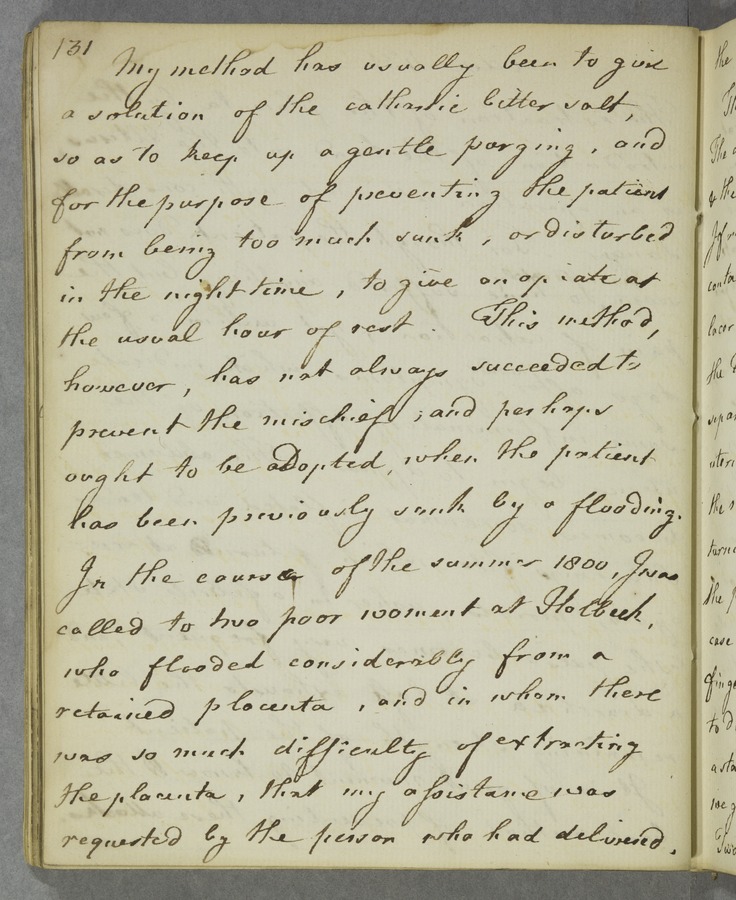 131
My method has usually been to give
a solution of the cathartic bitter salt,
so as to keep up a gentle purging, and
for the purpose of preventing the patient
from being too much sunk, or disturbed
in the night time, to give an opiate at
the usual hour of rest. This method,
however, has not always succeeded to
prevent the mischief; and perhaps
ought to be adopted, when the patient
has been previously sunk by a flooding.
In the course of the summer 1800, I was
called to two poor woment at Holbeck,
who flooded considerably from a
retained placenta, and in whom there
was so much difficulty of extracting
the placenta, that my assistance was
requested by the person who had delivered.
the
Th
The
& the
conta
the
the
the
case
finge
to d